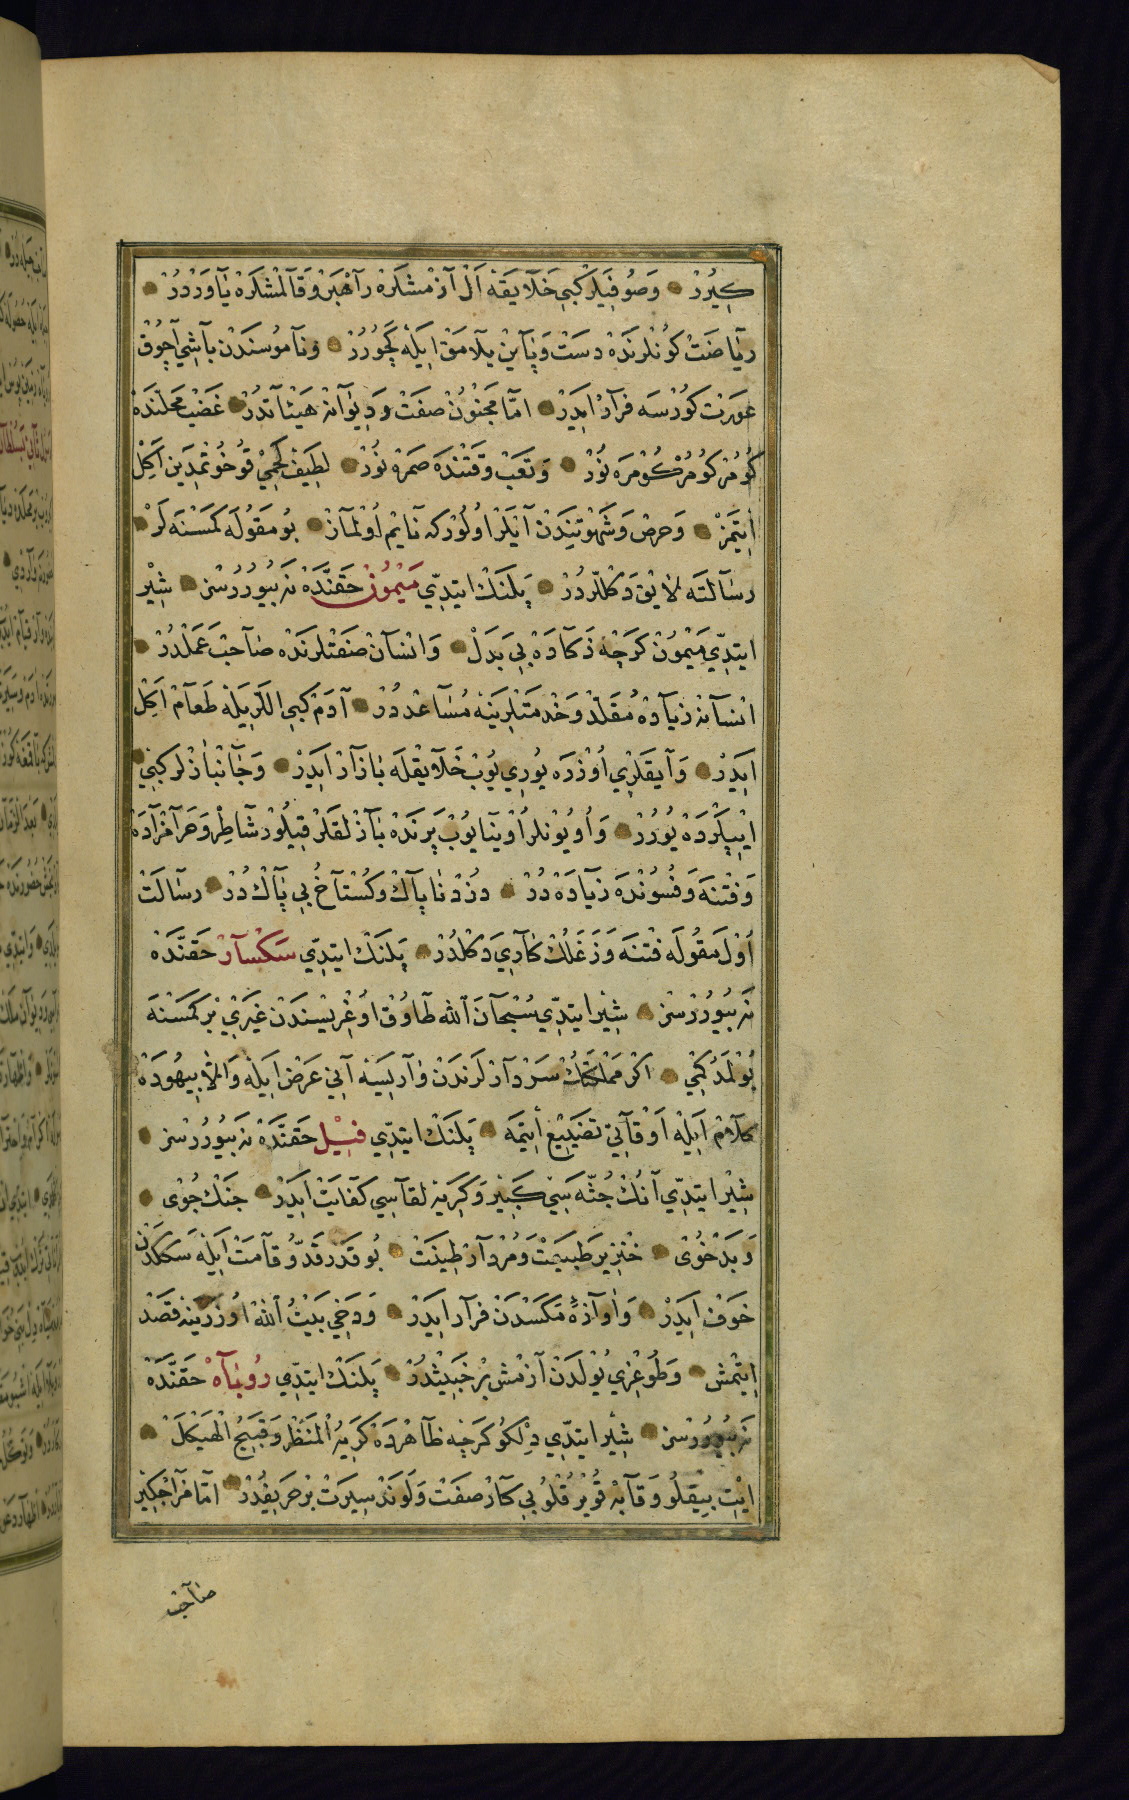 كیرر وصوفیلر كبی خلایقه ال آزمشلره راهبر و قالمشلره یاوردر
ریاضت كونلرنده دست و پاین یلامق ایله كچورر و ناموسندن باشی آچوق
عورت كورسه فرار ایدر اما مجنون صفت و دیوانه هیئاتدر غضب محلنده
كومر كومر كومره نور و تعب وقتنده صمره نور لطیف لحمی قوخوتمدین اكل
ایتمز و حرص و شهوتیندن آیلر اولور كه نایم اولماز بو مقوله كمسنه لر
رسالته لایق دكللردر پلنك ایتدی میمون حقنده نه بیوررسز شیر
ایتدی میمون كرچه ذكاده بی بدل و انسان صنعتلرنده صاحب عملدر
انسانه زیاده مقلد و خدمتلرینه مساعددر آدم كبی اللریله طعام اكل
ایدر و آیقلری اوزره یوری یوب خلایقله بازار ایدر و جانبازلر كبی
ایپلرده یورر و اویونلر اوینایوب پرنده بازلقلر قیلور شاطر و هرامزاده
و فتنه و فسونده زیاده در دزد ناپاك و كستاخ بی باك در رسالت
اول مقوله فتنه و زغلك كاری دكلدر پلنك ایتدی سكسار حقنده
نه بیوررسز شیر ایتدی سبحان الله طاوق اوغریسندن غیری بر كمسنه
بولمدكمی اكر مملكتك سردارلرندن وار ایسه آنی عرض ایله و الا بیهوده
كلام ایله اوقاتی تضییع ایتمه پلنك ایتدی فیل حقنده نه بیوررسز
شیر ایتدی آنك جثه سی كبیر و كریه لقاسی كفایت ایدر جنك جوی
و بدخوی خنزیر طبیعت و مردار طینت بو قدر قد و قامت ایله سككدن
خوف ایدر و آوازه مكسدن فرار ایدر و دخی بیت الله اوزرینه قصد
ایتمش و طوغری یولدن آزمش بر خبیثدر پلنك ایتدی روباه حقنده
نه بیوررسز شیر ایتدی دلكو كرچه ظاهرده كریه المنظر و قبیح الهیكل
ایت بیقلو و قابه قویرقلو بی كار صفت و لوند سیرت بر حریفدر اما مزاجكیر
صاحب